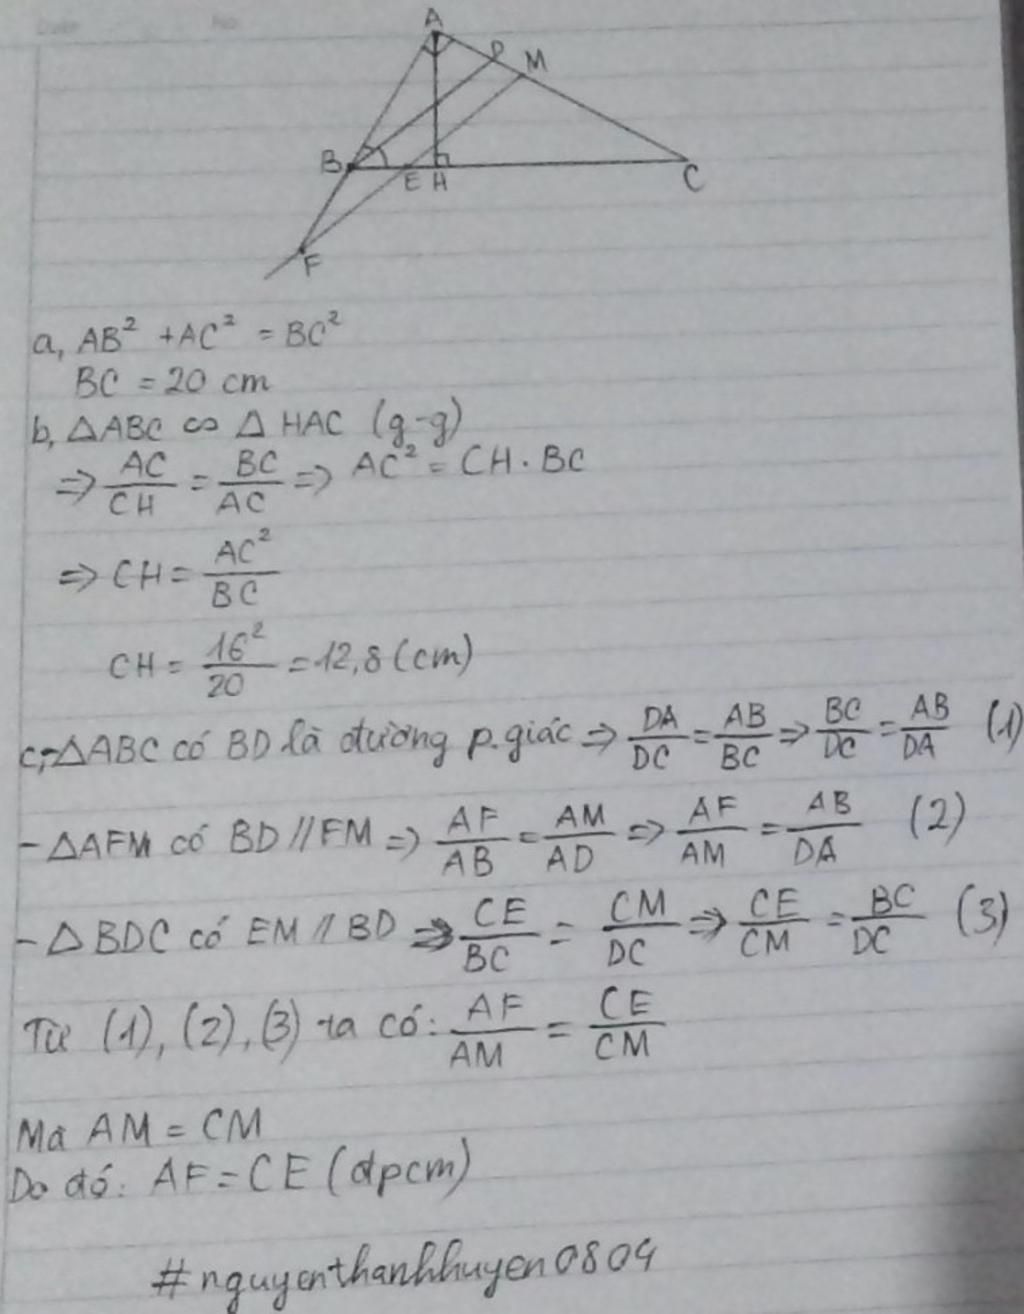 A
D
M
B
E H
C
F
a, AB² + AC² = BC²
BC = 20 cm
b, △ABC ∽ △ HAC (g-g)
=> AC/CH = BC/AC => AC² = CH . BC
=> CH = AC²/BC
CH = 16²/20 = 12,8 (cm)
c, - △ABC có BD là đường p.giác => DA/DC = AB/BC => BC/DC = AB/DA (1)
- △AFM có BD // FM => AF/AB = AM/AD => AF/AM = AB/DA (2)
- △BDC có EM // BD => CE/BC = CM/DC => CE/CM = BC/DC (3)
Từ (1), (2), (3) ta có: AF/AM = CE/CM
Mà AM = CM
Do đó: AF = CE (đpcm)
#nguyenthanhhuyen0804